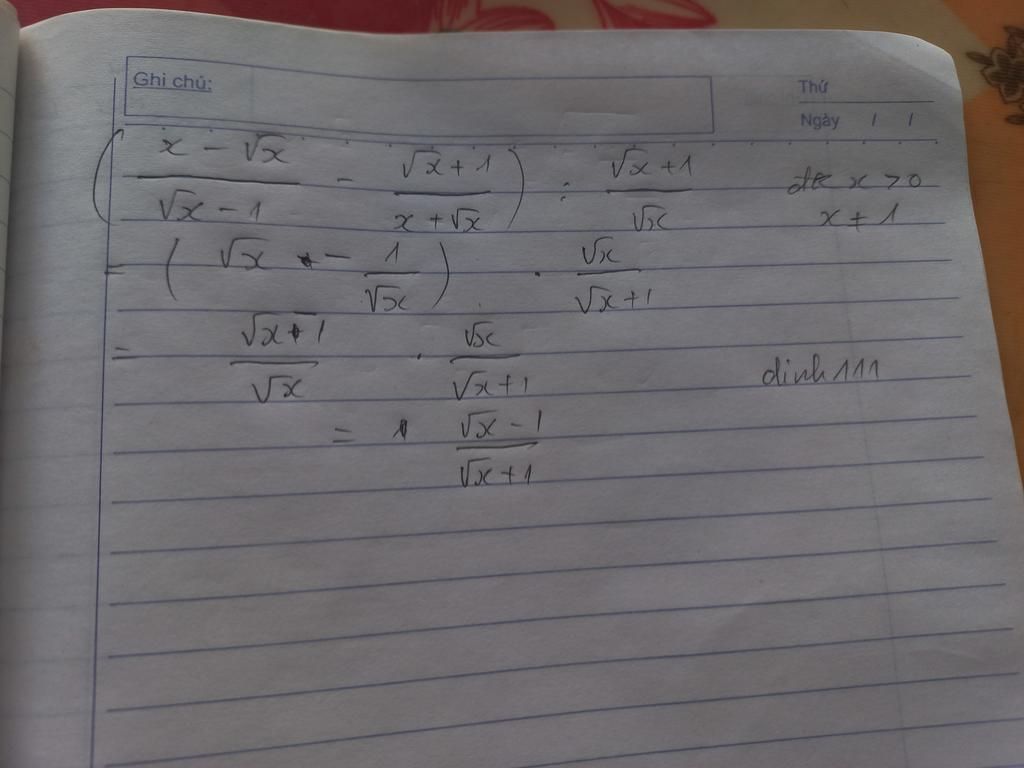 Ghi chú:
Thứ
Ngày / /
( (x - √x)/(√x - 1) - (√x + 1)/(x + √x) ) : (√x + 1)/√x đk x > 0
x ≠ 1
= ( √x - 1/√x ) . √x/(√x + 1)
= (√x - 1)/√x . √x/(√x + 1)
dinh 111
= (√x - 1)/(√x + 1)